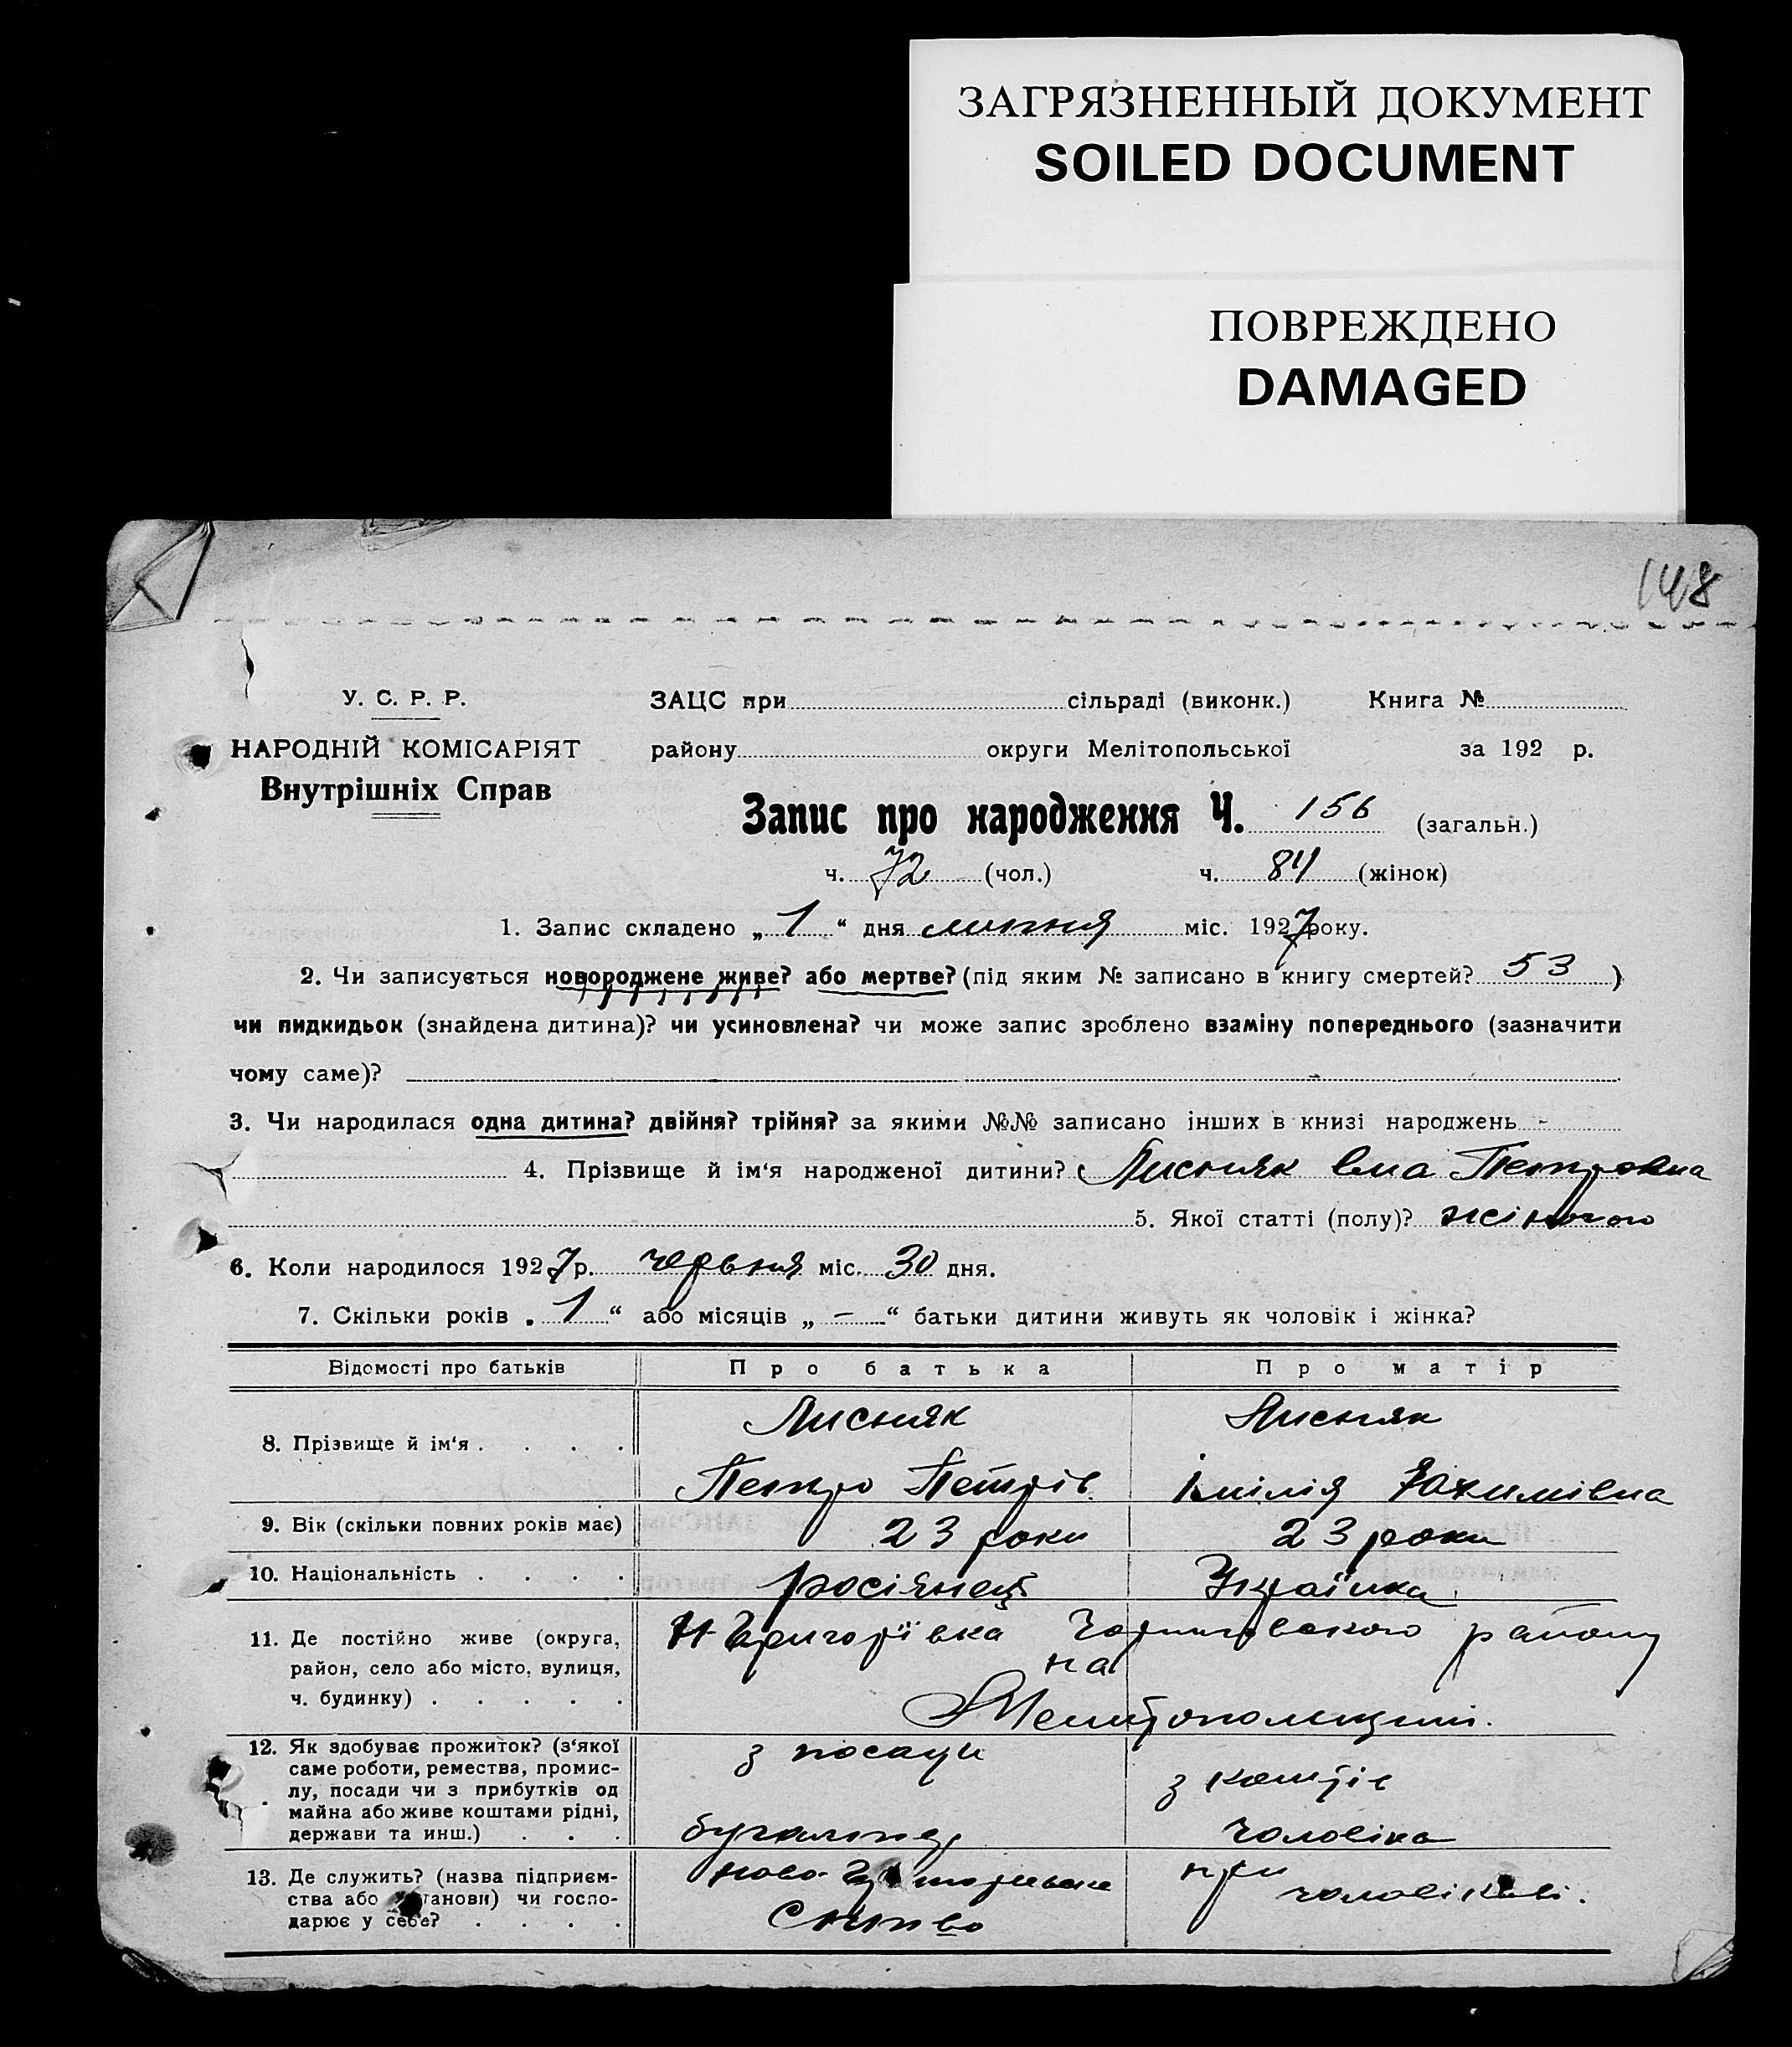 ЗАГРЯЗНЕННЫЙ ДОКУМЕНТ
SOILED DOCUMENT
ПОВРЕЖДЕНО
DAMAGED
148
У. С. Р. Р.
НАРОДНІЙ КОМІСАРІЯТ
Внутрішніх Справ
ЗАЦС при сільраді (виконк.) Книга №
району округи Мелітопольської за 192 р.
Запис про народження Ч. 156 (загальн.)
ч. 72 (чол.) ч. 84 (жінок)
1. Запис складено „ 1 “ дня липня міс. 1927 року.
2. Чи записується новороджене живе? або мертве? (під яким № записано в книгу смертей? 53 )
чи пидкидьок (знайдена дитина)? чи усиновлена? чи може запис зроблено взаміну попереднього (зазначити
чому саме)?
3. Чи народилася одна дитина? двійня? трійня? за якими №№ записано інших в книзі народжень -
4. Прізвище й ім‘я народженої дитини? Лисняк Петровна
5. Якої статті (полу)? жіночого
6. Коли народилося 1927 р. червня міс. 30 дня.
7. Скільки років „ 1 “ або місяців „ — “ батьки дитини живуть як чоловік і жінка?
Відомості про батьків Про батька Про матір
8. Прізвище й ім‘я . . . . Лисняк Лисняк
Петро Петрів Юхимівна
9. Вік (скільки повних років має) 23 роки 23 роки
10. Національність . . . . росіянец Українка
11. Де постійно живе (округа,
район, село або місто, вулиця,
ч. будинку) . . . . .
Н-Григорївка району
на
Мелитопольщині.
12. Як здобуває прожиток? (з‘якої
саме роботи, ремества, промис-
лу, посади чи з прибутків од
майна або живе коштами рідні,
держави та инш.) . . .
з посади
бугалтер
з коштів
чоловіка
13. Де служить? (назва підприєм-
ства або установи) чи госпо-
дарює у себе? . . . .
Ново-
при
чоловікові.